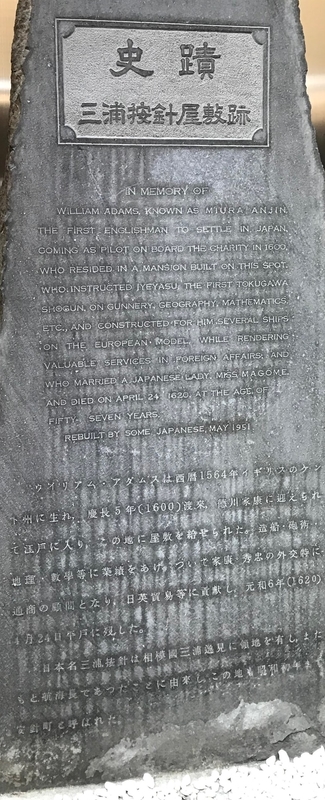 史蹟
三浦按針屋敷跡
IN MEMORY OF
WILLIAM ADAMS, KNOWN AS MIURA ANJIN,
THE FIRST ENGLISHMAN TO SETTLE IN JAPAN,
COMING AS PILOT ON BOARD THE CHARITY IN 1600,
WHO RESIDED IN A MANSION BUILT ON THIS SPOT,
WHO INSTRUCTED IYEYASU, THE FIRST TOKUGAWA
SHOGUN, ON GUNNERY, GEOGRAPHY, MATHEMATICS,
ETC., AND CONSTRUCTED FOR HIM SEVERAL SHIPS
ON THE EUROPEAN MODEL, WHILE RENDERING
VALUABLE SERVICES IN FOREIGN AFFAIRS, AND
WHO MARRIED A JAPANESE LADY, MISS MAGOME,
AND DIED ON APRIL 24, 1620, AT THE AGE OF
FIFTY-SEVEN YEARS.
REBUILT BY SOME JAPANESE, MAY 1951
ウイリアム・アダムスは西暦1564年イギリスのケン
ト州に生れ、慶長5年(1600)渡来、徳川家康に迎えられ
て江戸に入り、この地に屋敷を給せられた。造船・砲術・
地理・數學等に業績をあげ、ついで家康・秀忠の外交特に
通商の顧問となり、日英貿易等に貢献し、元和6年(1620)
4月24日平戸に歿した。
日本名三浦按針は相模國三浦逸見に領地を有し、また
もと航海長であつたことに由来し、この地も昭和初年まで
安針町と呼ばれた。